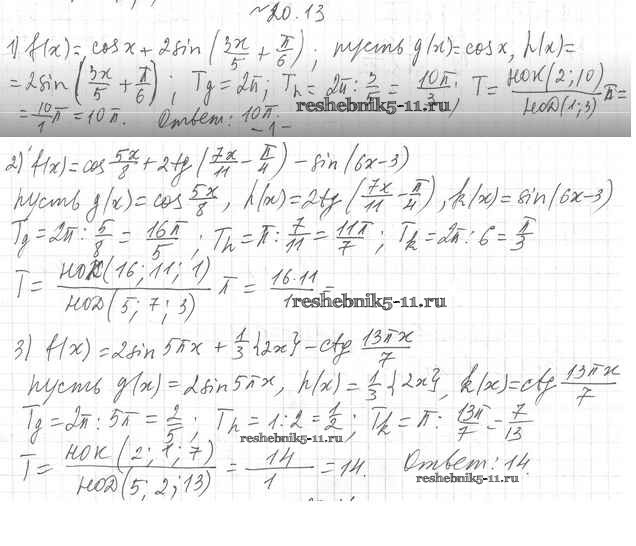 №20.13
1) f(x) = cos x + 2sin (3x/5 + π/6); пусть g(x) = cos x, h(x) =
= 2sin (3x/5 + π/6); Tg = 2π; Th = 2π : 3/5 = 10π/3; T = НОК(2; 10)/НОД(1; 3) π =
= 10/1 π = 10π. Ответ: 10π.
reshebnik5-11.ru
-1-
2) f(x) = cos 5x/8 + 2tg (7x/11 - π/4) - sin(6x-3)
пусть g(x) = cos 5x/8, h(x) = 2tg (7x/11 - π/4), k(x) = sin(6x-3)
Tg = 2π : 5/8 = 16π/5; Th = π : 7/11 = 11π/7; Tk = 2π : 6 = π/3
T = НОК(16; 11; 1)/НОД(5; 7; 3) π = 16·11/1 =
reshebnik5-11.ru
3) f(x) = 2sin 5πx + 1/3 {2x} - ctg 13πx/7
пусть g(x) = 2sin 5πx, h(x) = 1/3 {2x}, k(x) = ctg 13πx/7
Tg = 2π : 5π = 2/5; Th = 1 : 2 = 1/2; Tk = π : 13π/7 = 7/13
reshebnik5-11.ru
T = НОК(2; 1; 7)/НОД(5; 2; 13) = 14/1 = 14. Ответ: 14.
reshebnik5-11.ru